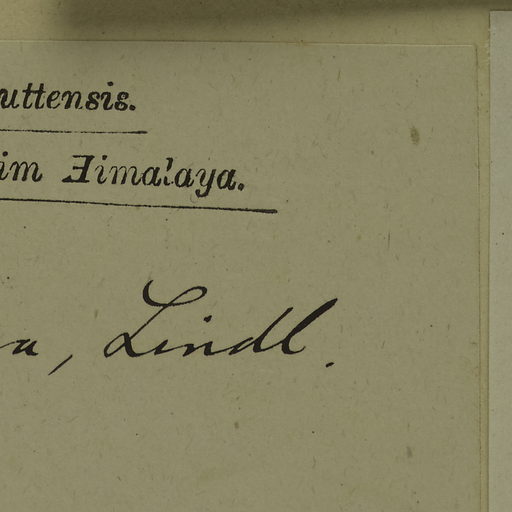 uttensis.
im Himalaya.
a, Lindl.